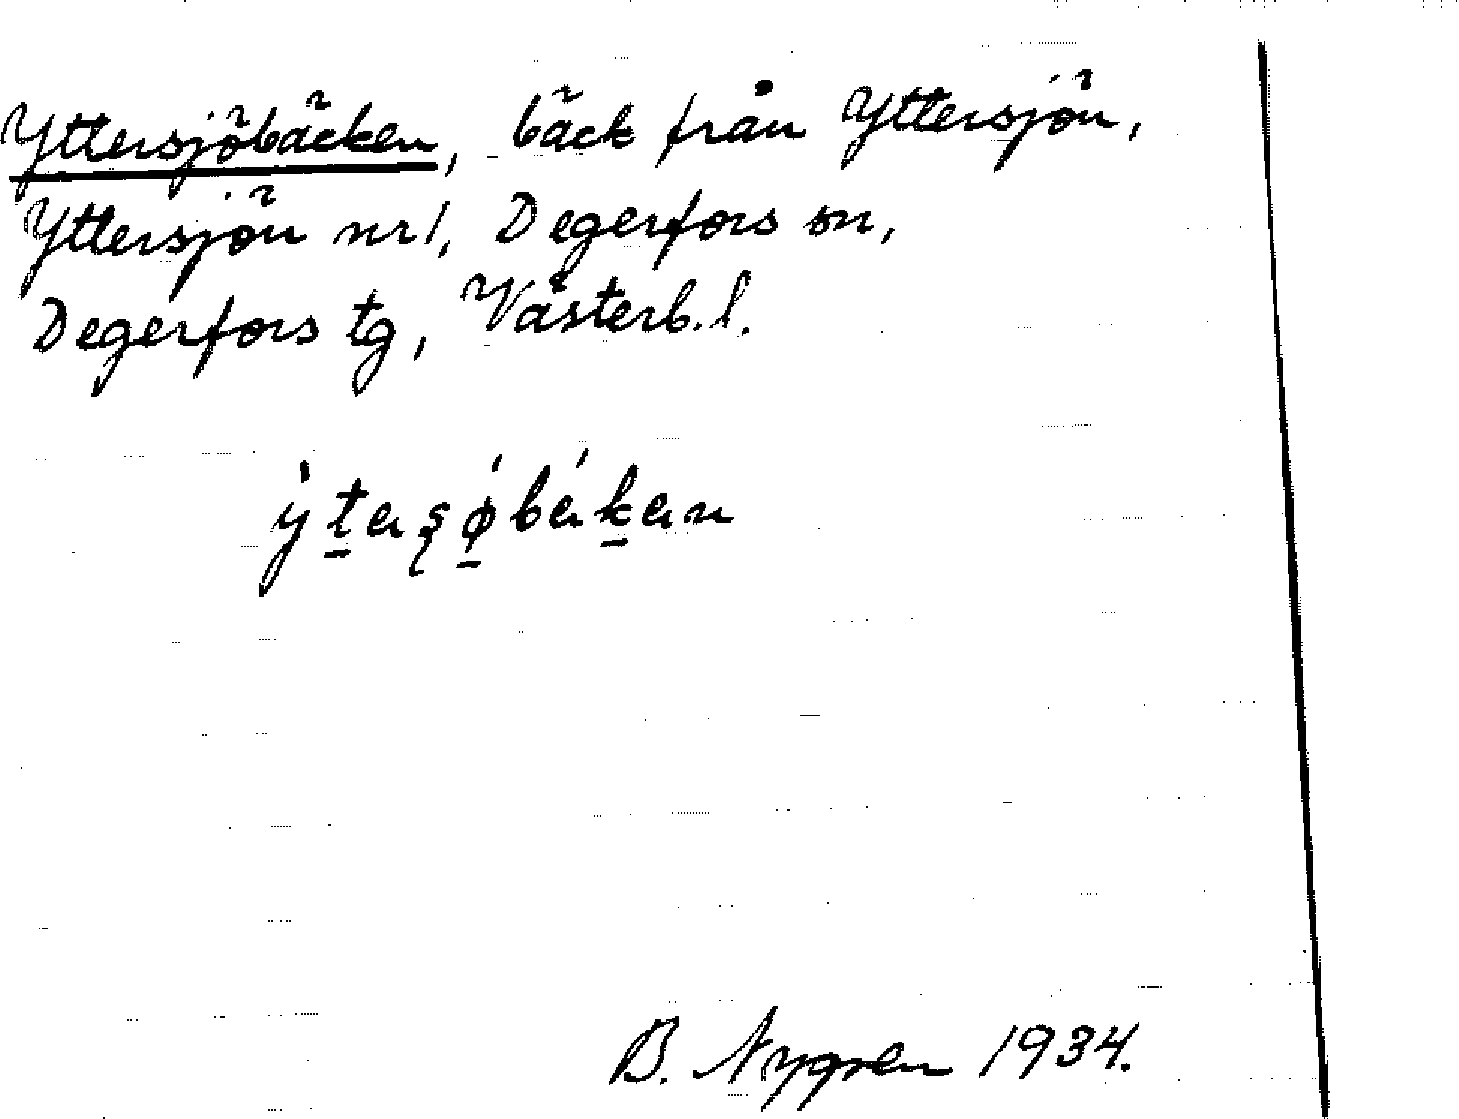 Yttersjöbäcken, bäck från Yttersjön,
Yttersjön nr 1, Degerfors sn,
Degerfors tg, Västerb. l.
B. Nygren 1934.